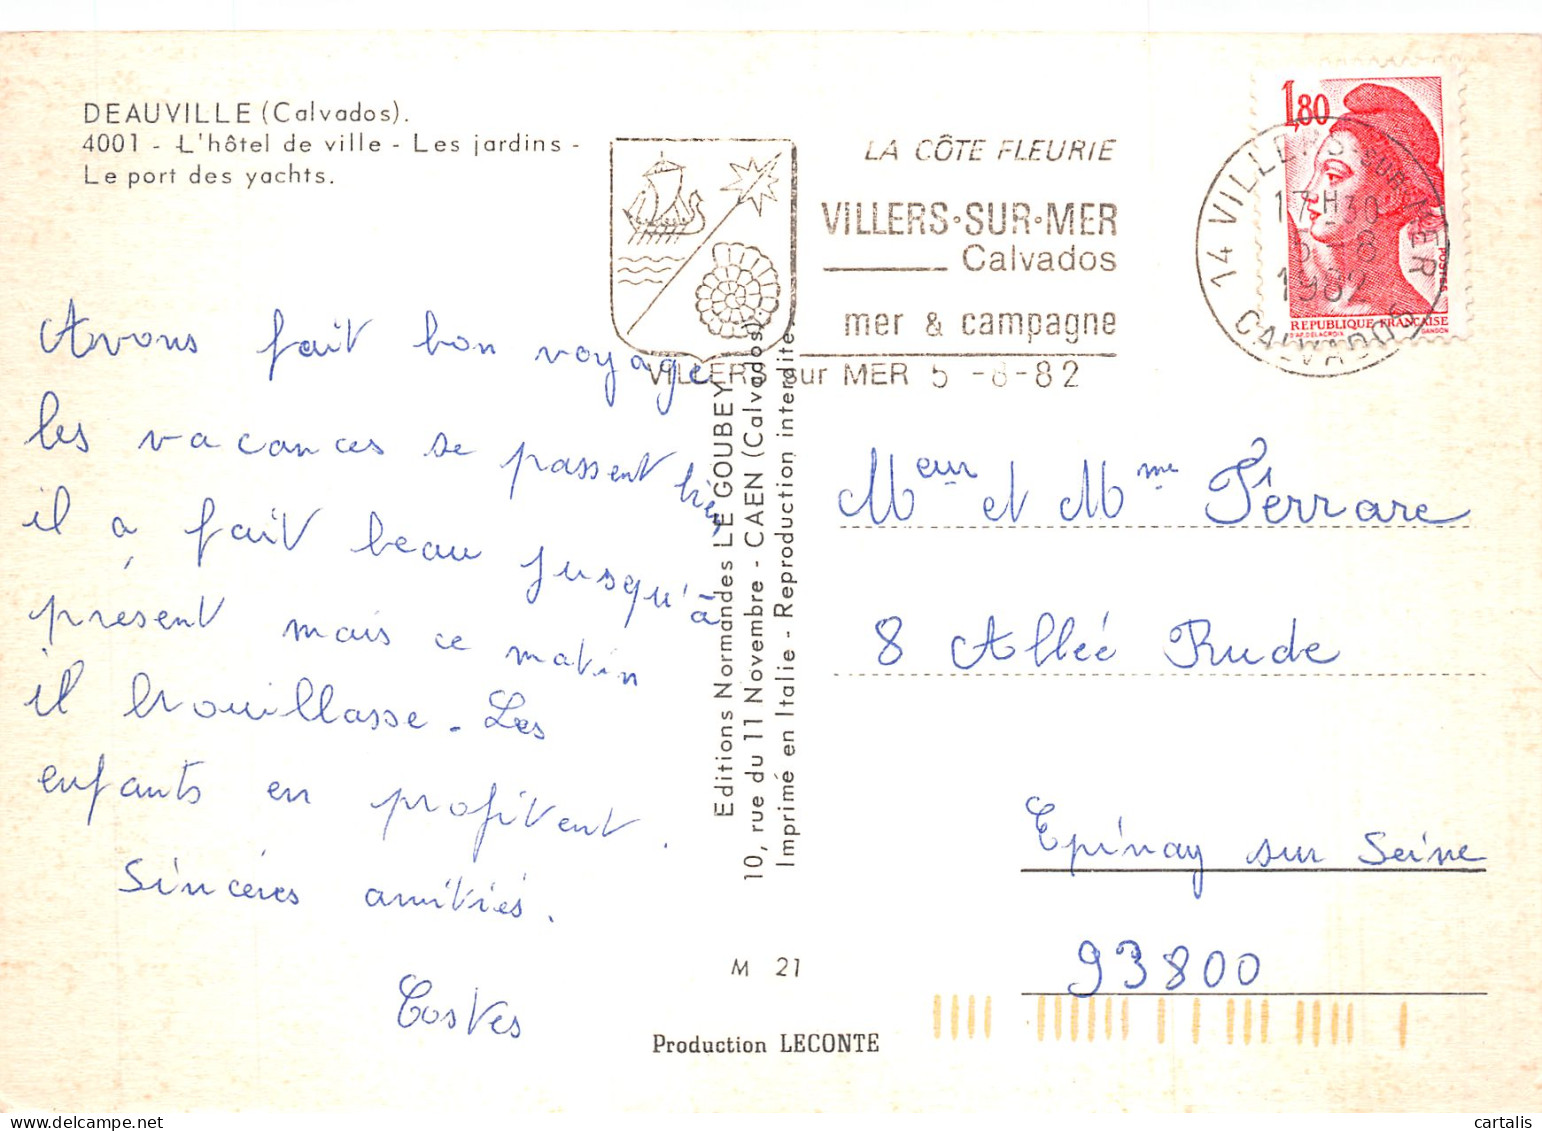 DEAUVILLE (Calvados).
4001 - L'hôtel de ville - Les jardins -
Le port des yachts.
LA CÔTE FLEURIE
VILLERS·SUR·MER
Calvados
mer & campagne
VILLERS sur MER 5 -8-82
1,80
REPUBLIQUE FRANÇAISE
POSTES
D'AP. DELACROIX GANDON
14 VILLERS-SUR-MER
17H30
5-8
1982
CALVADOS
Avons fait bon voyage
les vacances se passent bien
il a fait beau jusqu'à
présent mais ce matin
il brouillasse - Les
enfants en profitent.
Sincères amitiés.
Costes
Editions Normandes LE GOUBEY
10, rue du 11 Novembre - CAEN (Calvados)
Imprimé en Italie - Reproduction interdite
Meur et Mme Ferrare
8 Allée Rude
Epinay sur Seine
93800
M 21
Production LECONTE
cartalis